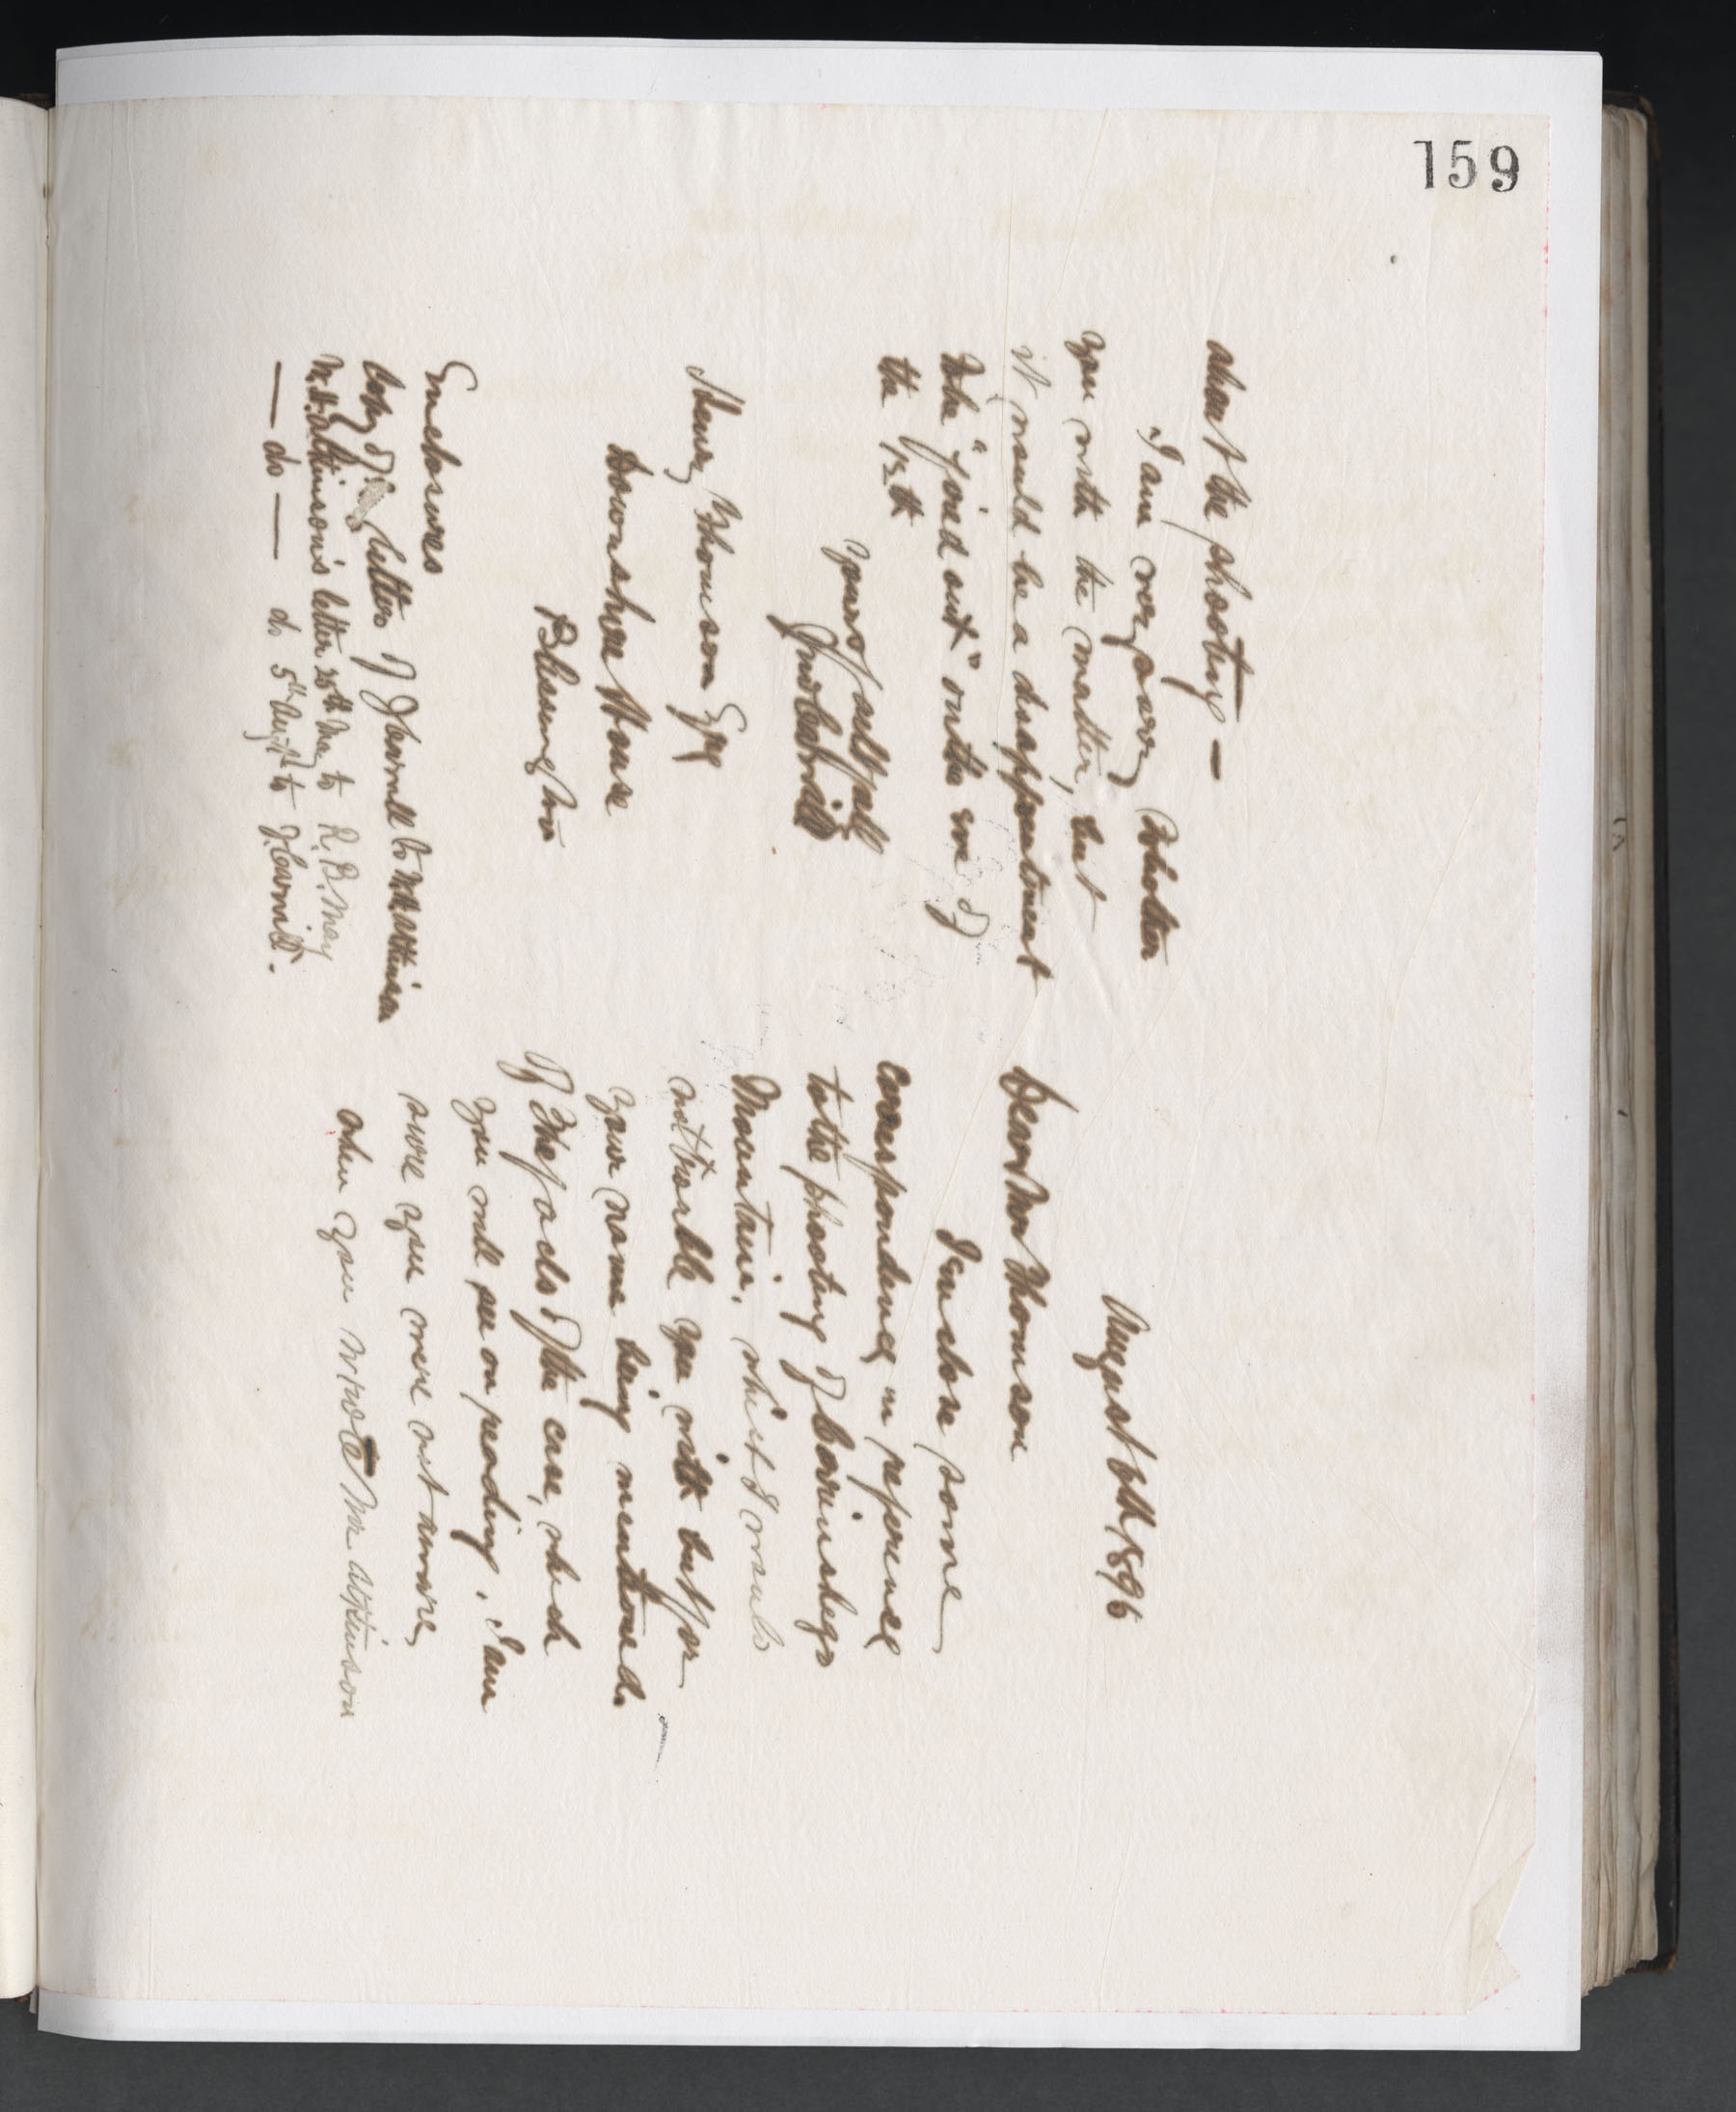 159
August 6th 1896
Dear Mr Thomson
I enclose some
correspondence in reference
to the shooting of Carrinshego
Mountain, which I would
not trouble you with but for
your name being mentioned.
Of the facts of the case, which
you will see on reading. I am
sure you were not aware,
when you wrote Mr Atkinson
about the shooting —
I am very sorry to bother
you with the matter, but
it would be a disappointment
to be "foiled out" on the eve of
the 12th
Yours faithfully
Henry Thomson Esq
Downshire House
Blessington
Enclosures
Copy of letter J G to Mr Atkinson
Mr Atkinson's letter 25th May to R. B. May
— do — do 5th Augst to